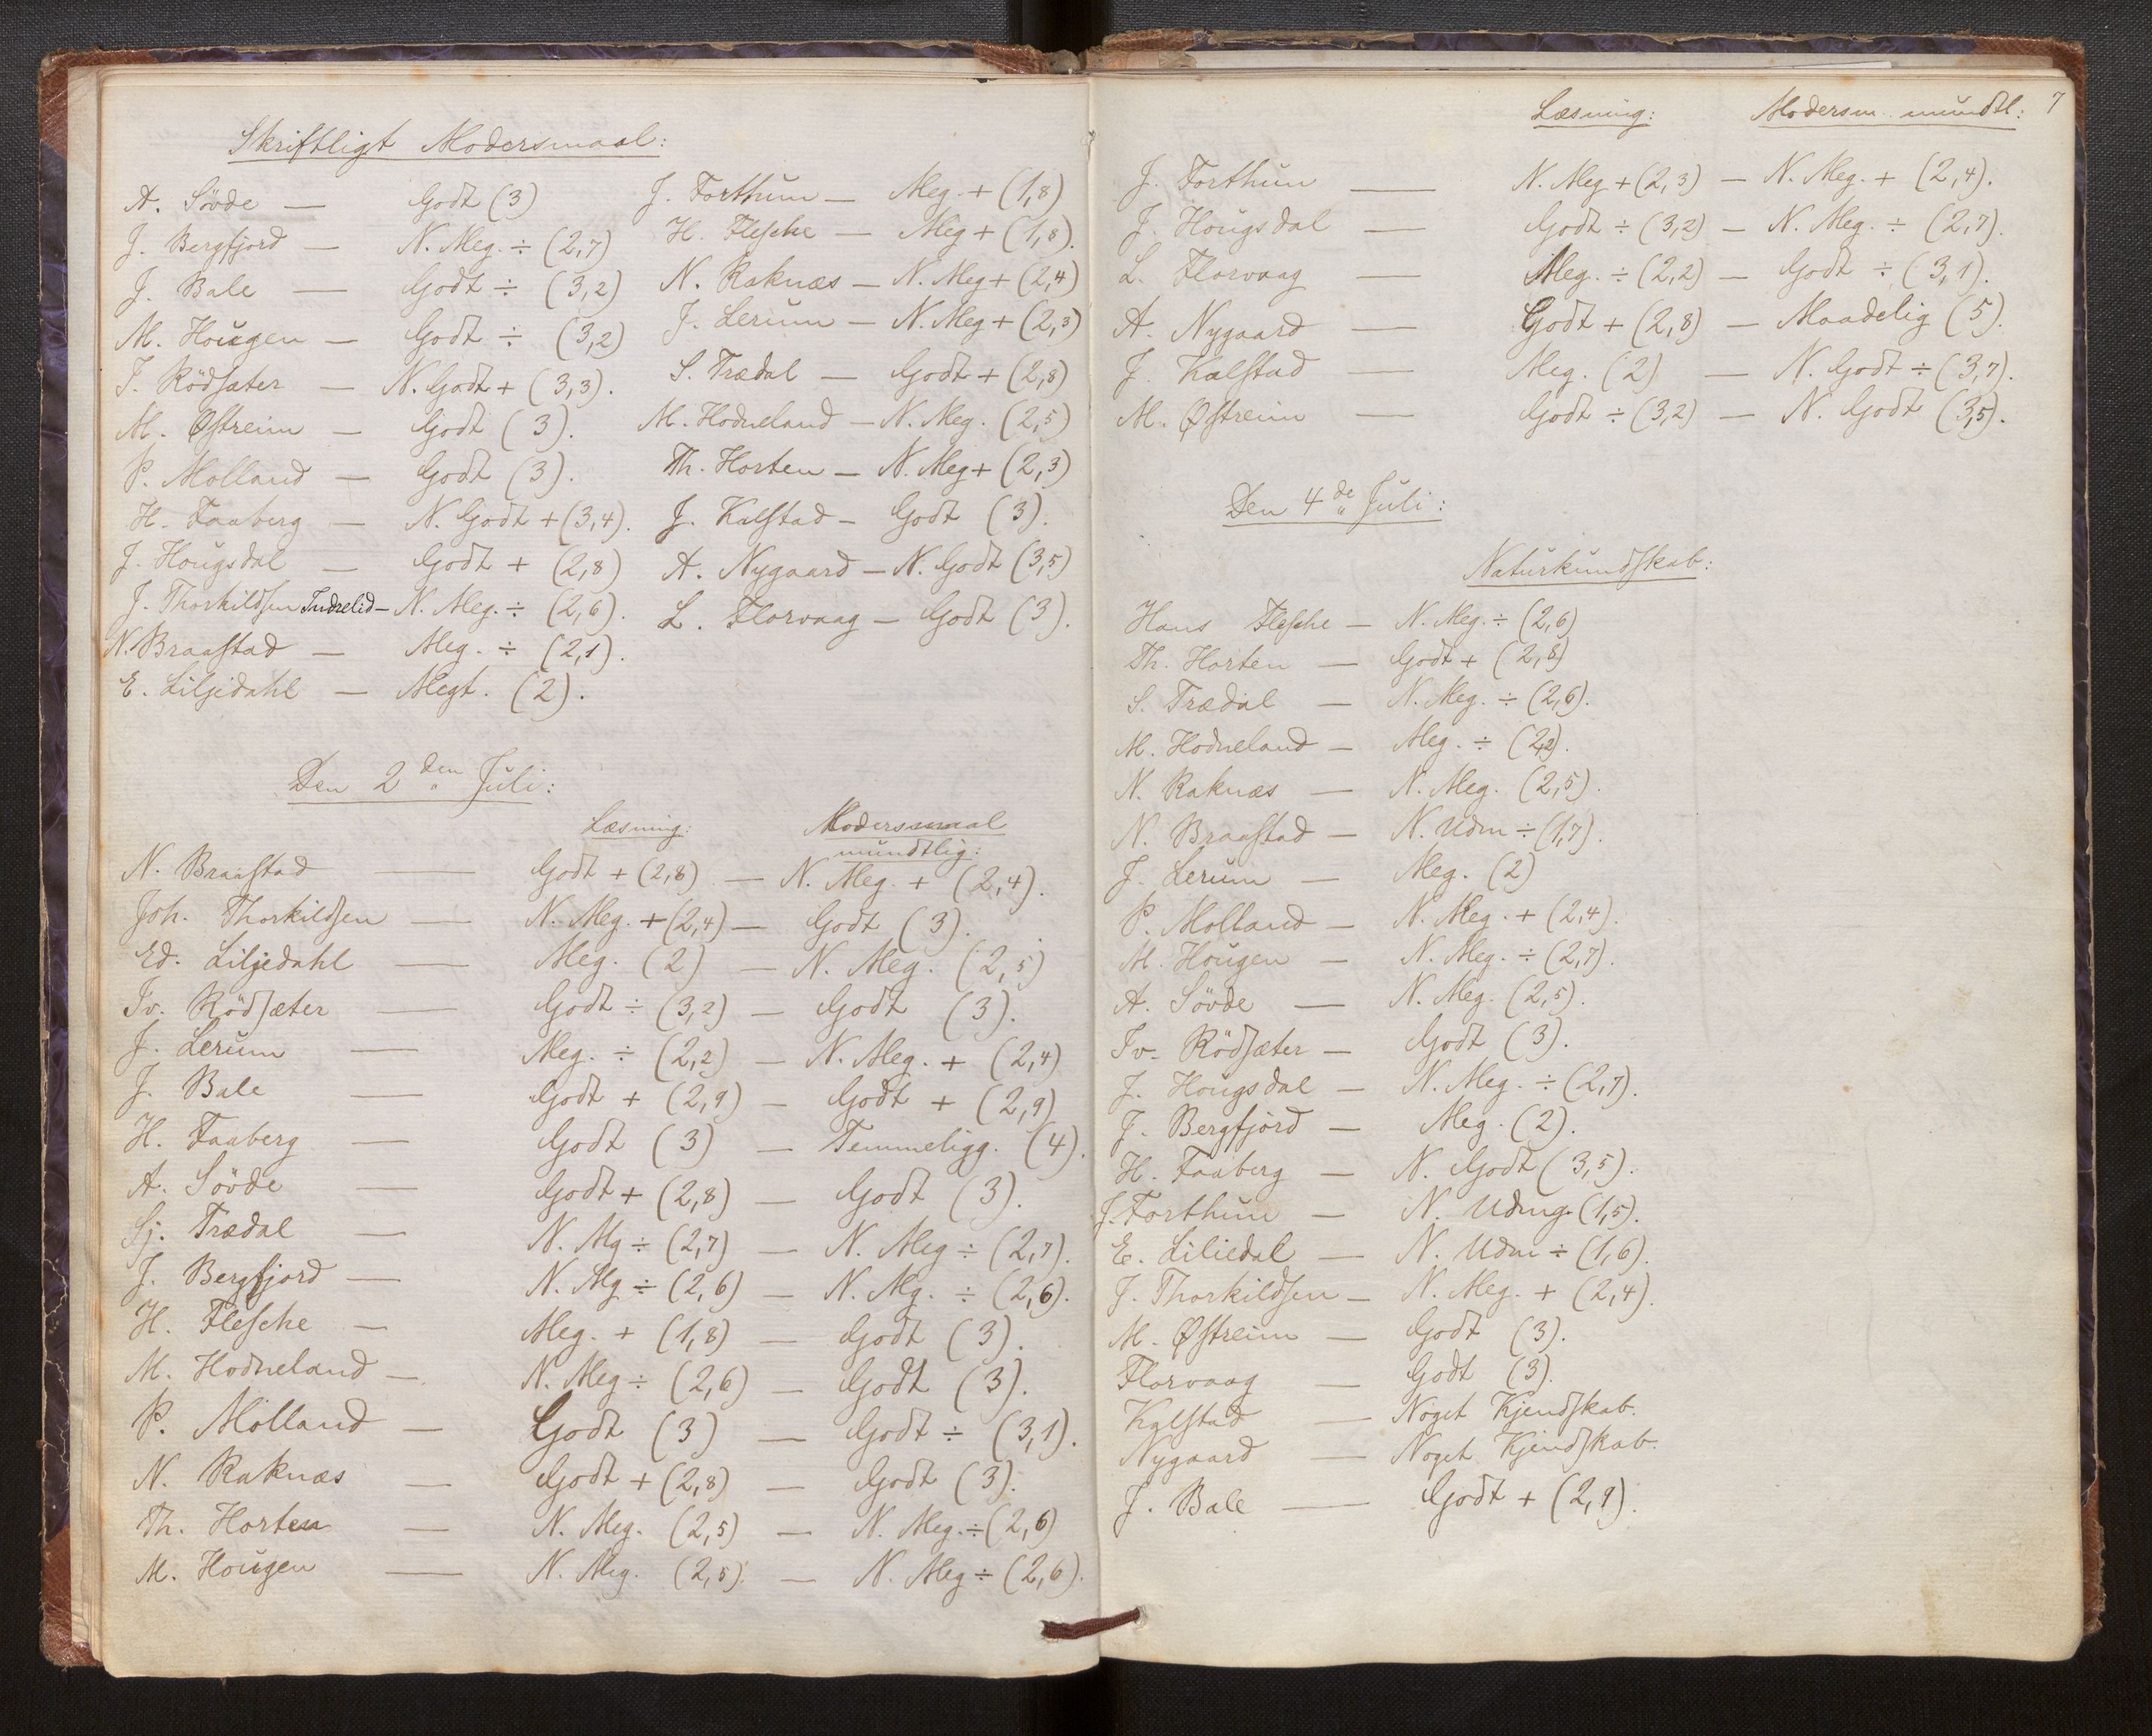 Skriftligt Modersmaal:
A. Sövde — Godt (3)
J. Bergfjord — N. Meg. ÷ (2,7)
J. Bale — Godt ÷ (3,2)
M. Hougen — Godt ÷ (3,2)
I. Rödsæter — N. Godt + (3,3).
M. Østreim — Godt (3).
P. Molland — Godt (3).
H. Faaberg — N. Godt + (3,4).
J. Hougsdal — Godt + (2,8)
J. Thorkildsen Indrelid — N. Meg. ÷ (2,6).
N. Braastad — Meg. ÷ (2,1).
E. Liljedahl — Megt. (2).
J. Forthun — Meg. + (1,8)
H. Flesche — Meg + (1,8).
N. Raknæs — N. Meg + (2,4)
J. Lerum — N. Meg + (2,3)
S. Trædal — Godt + (2,8)
M. Hodneland — N. Meg. (2,5)
Th. Horten — N. Meg + (2,3)
J. Kalstad — Godt (3).
A. Nygaard — N. Godt (3,5)
L. Florvaag — Godt (3).
Den 2den Juli:
Læsning: Modersmaal
mundtlig:
N. Braastad — Godt + (2,8) — N. Meg. + (2,4).
Joh. Thorkildsen — N. Meg. + (2,4) — Godt (3).
Ed. Liljedahl — Meg. (2) — N. Meg. (2,5)
Iv. Rödsæter — Godt ÷ (3,2) — Godt (3).
J. Lerum — Meg. ÷ (2,2) — N. Meg. + (2,4)
J. Bale — Godt + (2,9) — Godt + (2,9)
H. Faaberg — Godt (3) — Temmeligg. (4).
A. Sövde — Godt + (2,8) — Godt (3).
Sj. Trædal — N. Mg ÷ (2,7) — N. Meg ÷ (2,7).
J. Bergfjord — N. Mg ÷ (2,6) — N. Mg. ÷ (2,6).
H. Flesche — Meg. + (1,8) — Godt (3).
M. Hodneland — N. Meg ÷ (2,6) — Godt (3).
P. Molland — Godt (3) — Godt ÷ (3,1).
N. Raknæs — Godt + (2,8) — Godt (3).
Th. Horten — N. Meg. (2,5) — N. Meg. ÷ (2,6)
M. Hougen — N. Meg. (2,5). — N. Meg ÷ (2,6).
Læsning: Modersm. mundtl: 7
J. Forthun — N. Meg + (2,3) — N. Meg. + (2,4).
J. Hougsdal — Godt ÷ (3,2) — N. Meg. ÷ (2,7).
L. Florvaag — Meg. ÷ (2,2) — Godt ÷ (3,1).
A. Nygaard — Godt + (2,8) — Maadelig (5).
J. Kalstad — Meg. (2) — N. Godt ÷ (3,7).
M. Østreim — Godt ÷ (3,2) — N. Godt (3,5).
Den 4de Juli:
Naturkundskab:
Hans Flesche — N. Meg. ÷ (2,6)
Th. Horten — Godt + (2,8)
S. Trædal — N. Meg. ÷ (2,6).
M. Hodneland — Meg. ÷ (2,2).
N. Raknæs — N. Meg. (2,5).
N. Braastad — N. Udm ÷ (1,7).
J. Lerum — Meg. (2)
P. Molland — N. Meg. + (2,4).
M. Hougen — N. Meg. ÷ (2,7).
A. Sövde — N. Meg. (2,5).
Iv. Rödsæter — Godt (3).
J. Hougsdal — N. Meg. ÷ (2,7).
J. Bergfjord — Meg. (2).
H. Faaberg — N. Godt (3,5).
J. Forthun — N. Udmg. (1,5).
E. Liliedal — N. Udm ÷ (1,6).
J. Thorkildsen — N. Meg. + (2,4).
M. Østreim — Godt (3).
Florvaag — Godt (3).
Kalstad — Noget Kjendskab.
Nygaard — Noget Kjendskab.
J. Bale — Godt + (2,9).